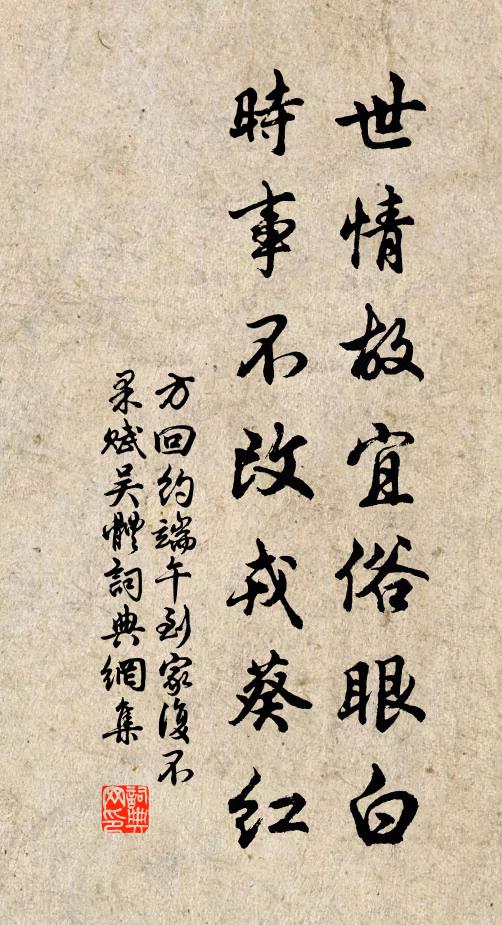 世情故宜俗眼白
時事不改戎葵紅
方回約端午到家復不
果賦吴體詞典網集
詞典网印